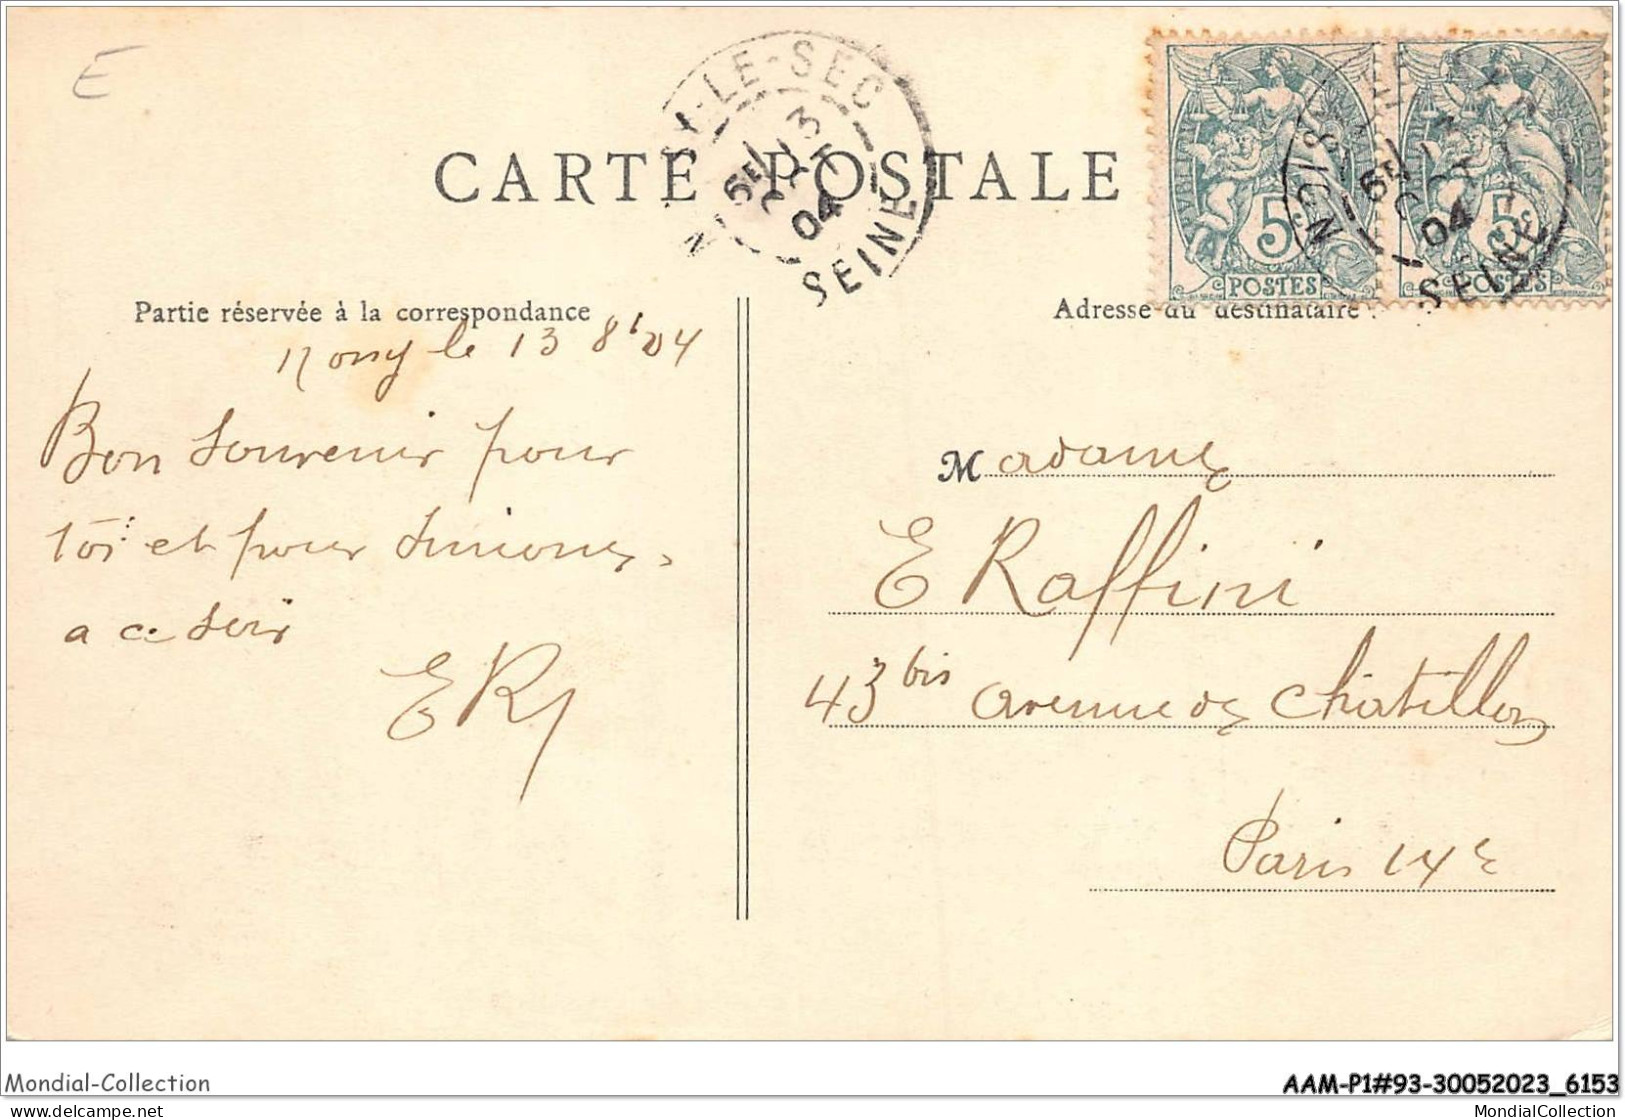 E
NOISY-LE-SEC
6E/ 13
OCT
04
SEINE
CARTE POSTALE
5c
POSTES
5c
POSTES
NOISY
6E/ 13
OCT
04
SEINE
Partie réservée à la correspondance
Noisy le 13 8bre 04
Bon souvenir pour
toi et pour Simone,
a ce soir
ER
Adresse du destinataire
Madame
E Raffini
43 bis avenue de Chatillon
Paris 14e
Mondial-Collection
AAM-P1#93-30052023_6153
Mondial-Collection
MondialCollection